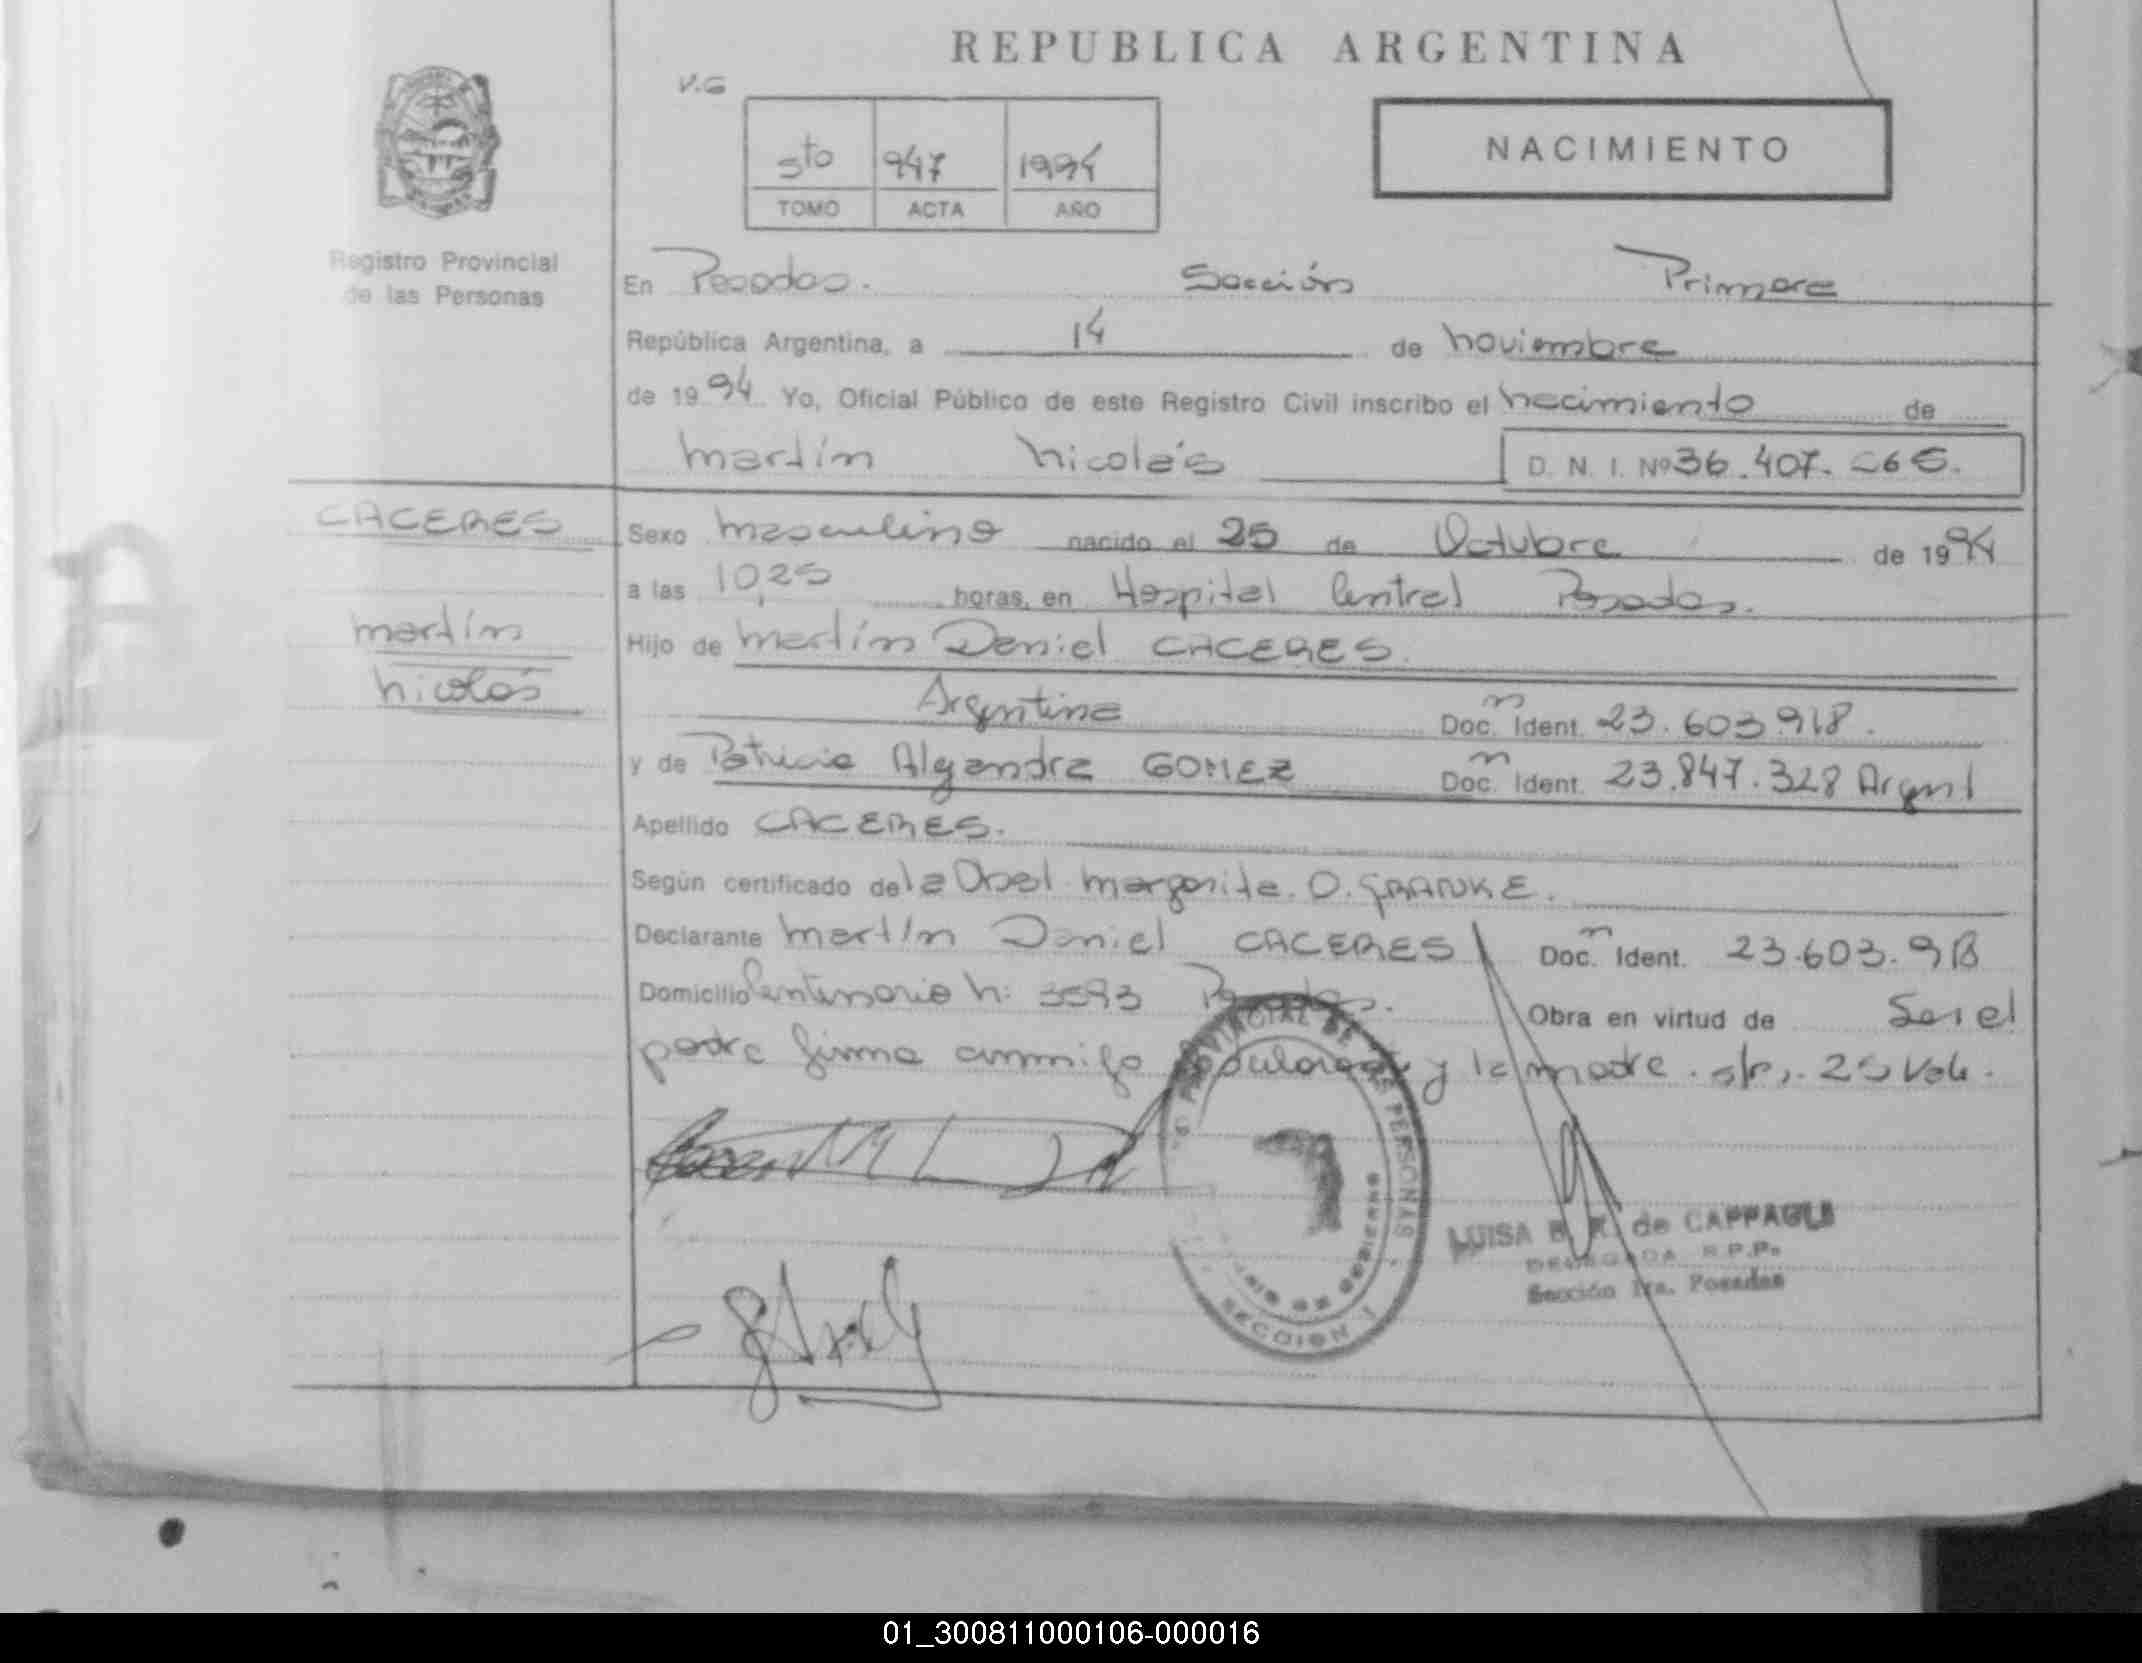 REPUBLICA ARGENTINA
V.G
5to 947 1994
TOMO ACTA AÑO
NACIMIENTO
Registro Provincial
de las Personas
En Posadas. Sección Primera
República Argentina, a 14 de noviembre
de 1994 Yo, Oficial Público de este Registro Civil inscribo el nacimiento de
Martín Nicolás D. N. I. Nº 36.407.
CACERES
Martín
Nicolás
Sexo masculino nacido el 25 de Octubre de 1994
a las 10,25 horas, en Hospital Central Posadas.
Hijo de Martín Daniel CACERES.
Argentina Doc. Ident. 23.603.918.
y de Patricia Alejandra GOMEZ Doc. Ident. 23.847.328 Argent
Apellido CACERES.
Según certificado de la Obst. Margarita. O. GRANKE.
Declarante Martín Daniel CACERES Doc. Ident. 23.603.918
Domicilio Centenario N: 3593 Posadas. Obra en virtud de Ser el
padre firma conmigo y la madre.
PROVINCIAL DE LAS PERSONAS
SECCION 1
LUISA B. K. de CAPPAGLI
DELEGADA R.P.P.
Sección 1ra. Posadas
01_300811000106-000016